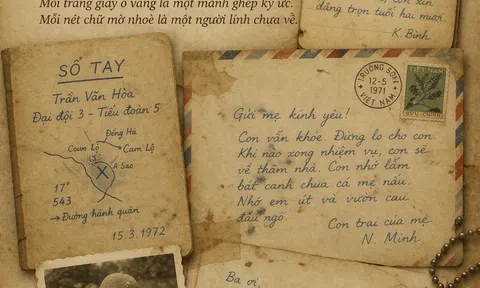 Mỗi trang giấy ố vàng là một mảnh ghép ký ức.
Mỗi nét chữ mờ nhoè là một người lính chưa về.
dâng trọn tuổi hai mươi.
K. Bình.
SỔ TAY
Trần Văn Hòa
Đại đội 3 - Tiểu đoàn 5
Đông Hà
Cam Lộ
A Sao
17°
543
→ Đường hành quân
15.3.1972
TRƯỜNG SƠN
12-5
1971
VIỆT NAM
VIETNAM
Gửi mẹ kính yêu!
Con vẫn khỏe. Đừng lo cho con
Khi nào xong nhiệm vụ, con sẽ
về thăm nhà. Con nhớ lắm
bát canh chua cá mẹ nấu.
Nhớ em út và vườn cau
đầu ngõ.
Con trai của mẹ
N. Minh.
Ba ơi,